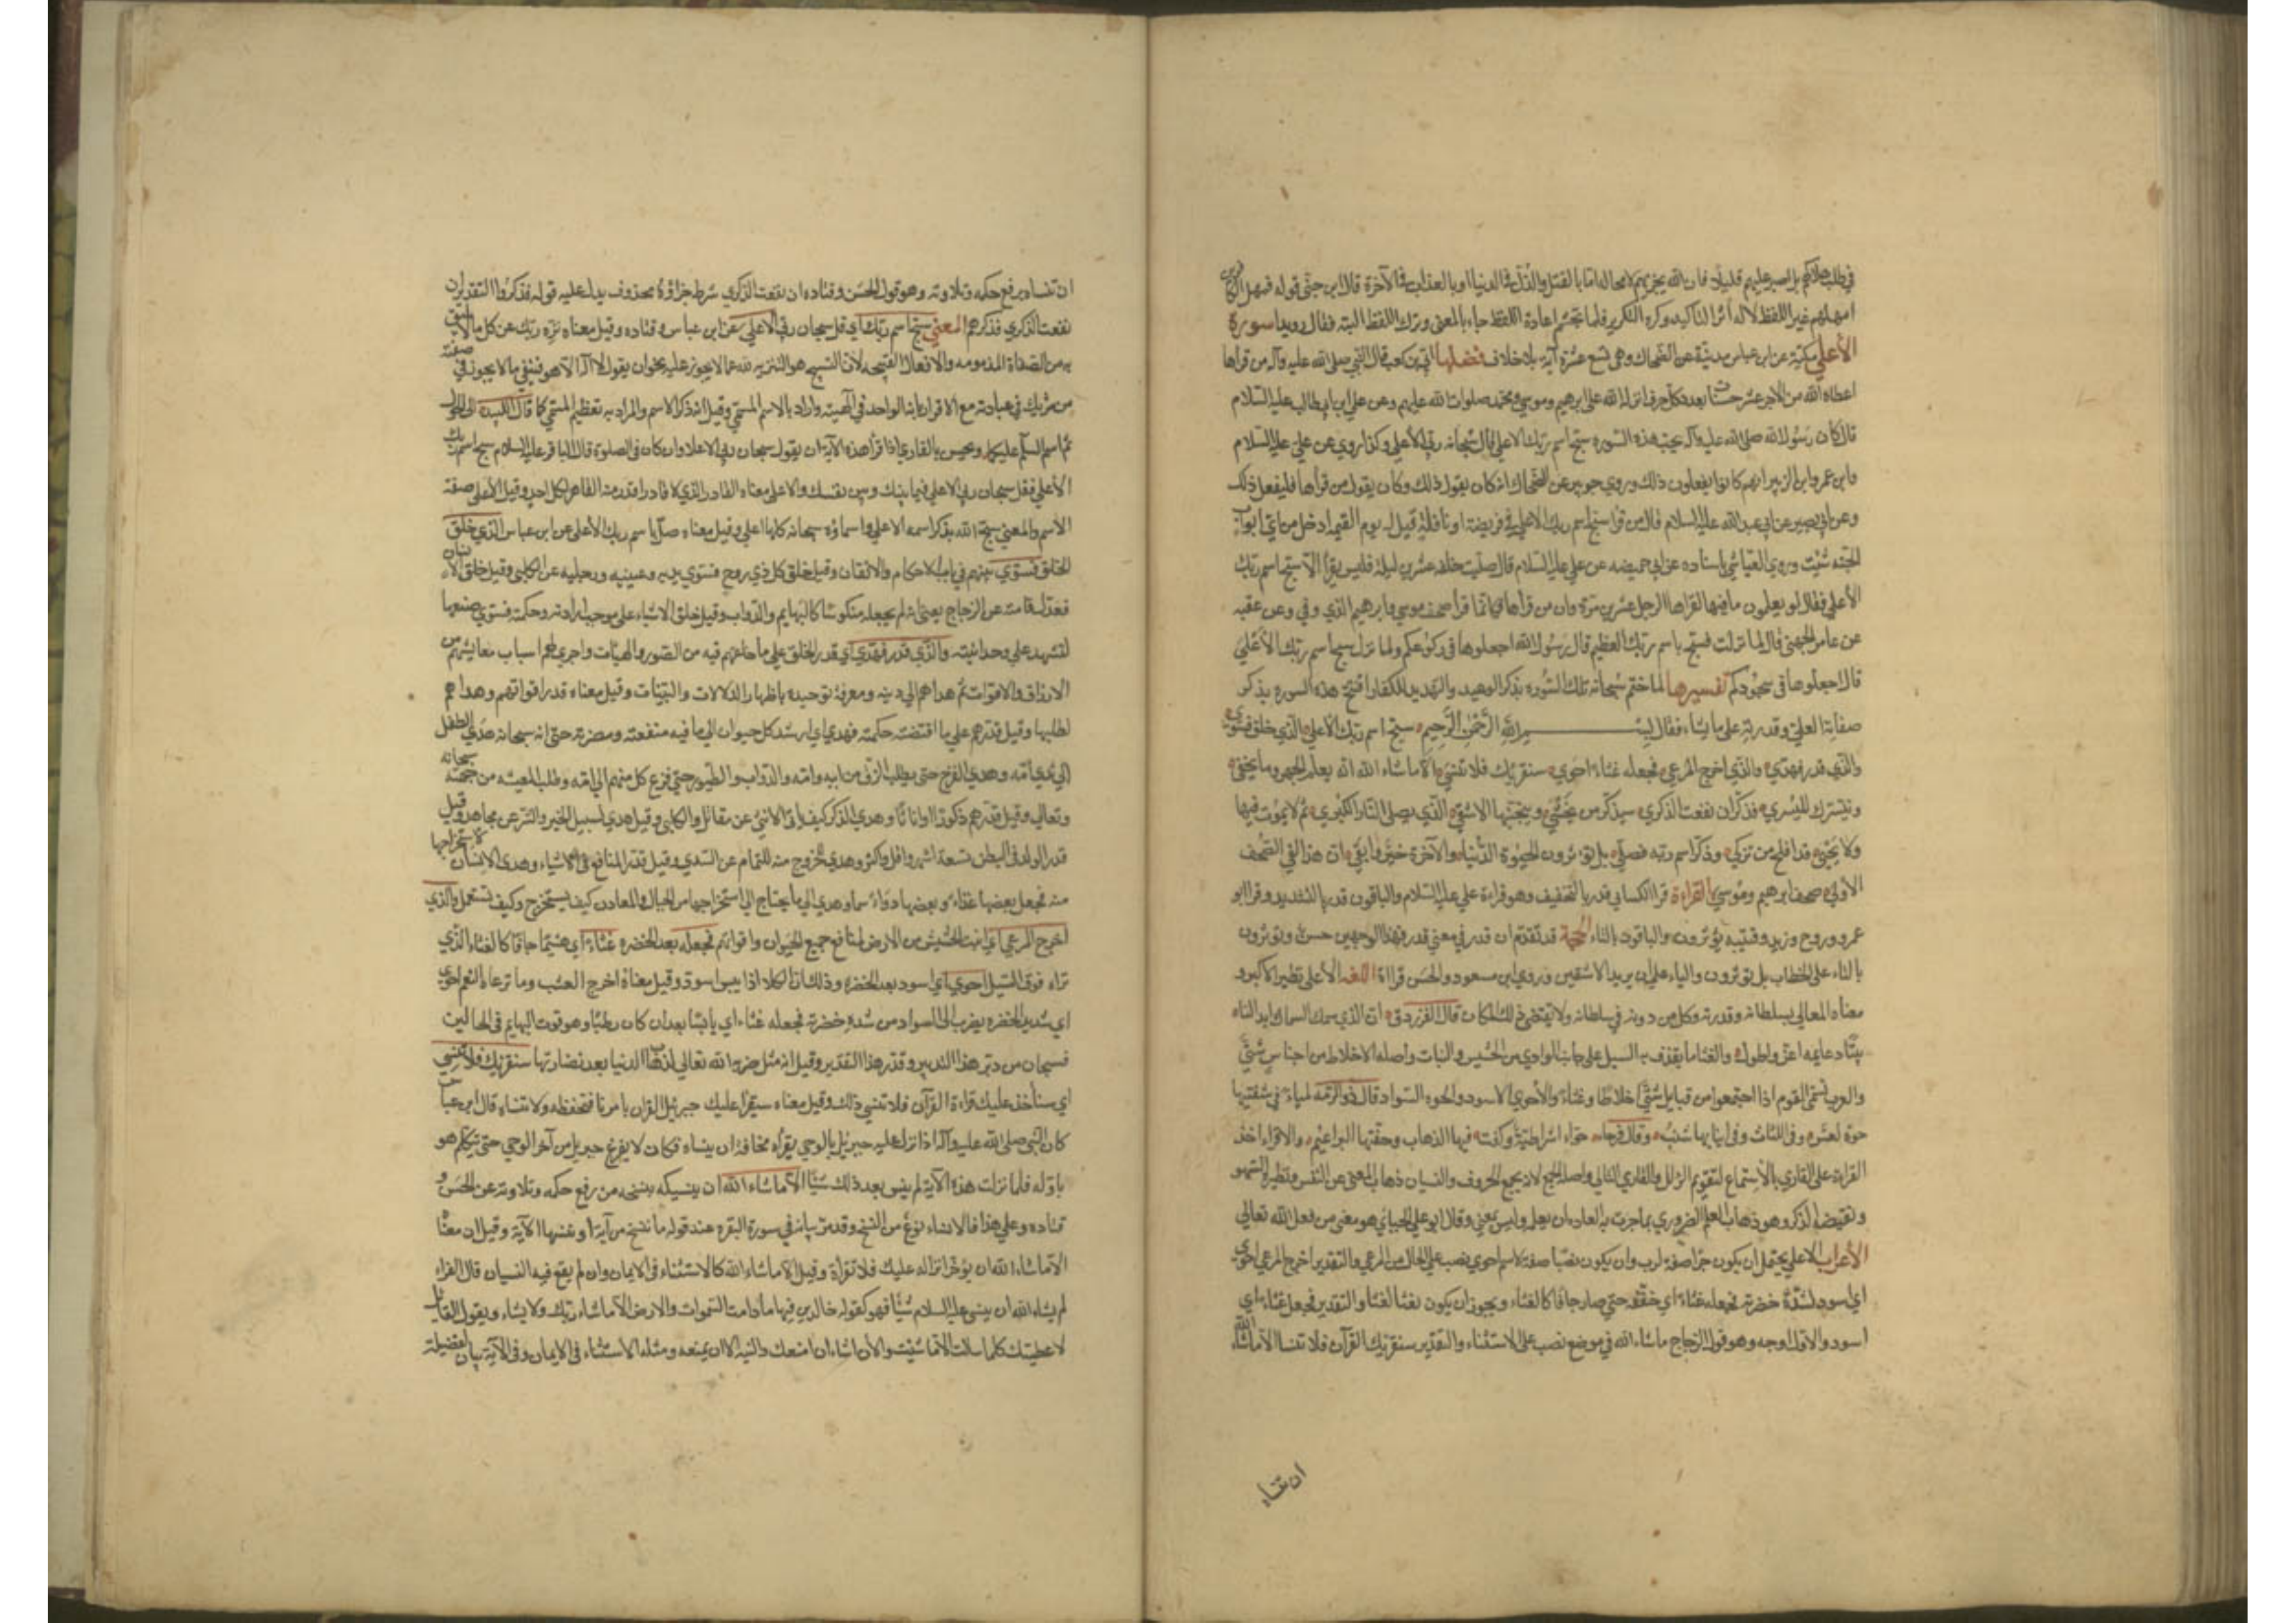 في طلب هلاكهم بل اصبر عليهم قليلا فان الله يجزيهم لا محاله اما بالقتل والذل في الدنيا او بالعذاب في الآخرة قال ابن جني قوله فمهل الكافرين
امهلهم غير اللفظ لانه آثر التاكيد وكره التكرير فلما تجشم اعادة اللفظ جاء بالمعنى وترك اللفظ البته فقال رويدا سورة
الأعلى مكية عن ابن عباس مدنية عن الضحاك وهي تسع عشرة آيه بلا خلاف فضلها ابي بن كعب قال النبي صلى الله عليه وآله من قراها
اعطاه الله من الاجر عشر حسنات بعدد كل حرف انزله الله على ابرهيم وموسى ومحمد صلوات الله عليهم وعن علي ابن ابيطالب عليه السلام
قال كان رسول الله صلى الله عليه وآله يحب هذه السوره سبح اسم ربك الاعلى قال سبحانه ربي الأعلى وكذا روي عن علي عليه السلام
وابن عمر وابن الزبير انهم كانوا يفعلون ذلك وروي جويبر عن الضحاك انه كان يقول ذلك وكان يقول من قرأها فليفعل ذلك
وعن ابي بصير عن ابي عبد الله عليه السلام قال من قرا سبح اسم ربك الاعلى في فريضة او نافلة قيل له يوم القيمه ادخل من اي ابواب
الجنه شئت وروي العياشي باسناده عن ابي حميصه عن علي عليه السلام قال صليت خلفه عشرين ليلة فليس يقرأ الا سبح اسم ربك
الأعلى فقال لو يعلمون ما فيها لقراها الرجل عشرين مرة وان من قراها فكانما قرا صحف موسى وابرهيم الذي وفى وعن عقبه
عن عامر الجهني قال لما نزلت فسبح باسم ربك العظيم قال رسول الله اجعلوها في ركوعكم ولما نزل سبح اسم ربك الأعلى
قال اجعلوها في سجودكم تفسيرها لما ختم سبحانه تلك السوره بذكر الوعيد والتهديد للكفار افتتح هذه السوره بذكر
صفاته العلى وقدرته على ما يشاء فقال بسم الله الرحمن الرحيم سبح اسم ربك الأعلى الذي خلق فسوى
والذي قدر فهدى والذي اخرج المرعى فجعله غثاء احوى سنقرئك فلا تنسى الا ماشاء الله انه يعلم الجهر وما يخفى
ونيسرك لليسرى فذكر ان نفعت الذكرى سيذكر من يخشى ويتجنبها الاشقى الذي يصلى النار الكبرى ثم لا يموت فيها
ولا يحيى قد افلح من تزكى وذكر اسم ربه فصلى بل تؤثرون الحيوة الدنيا والآخرة خير وابقى ان هذا لفي الصحف
الأولى صحف ابرهيم وموسى القراءة قرا الكسائي قدر بالتخفيف وهو قراءة علي عليه السلام والباقون قدر بالتشديد وقرا ابو
عمرو وروح وزيد وقتيبه يؤثرون والباقون بالتاء الحجة قد تقدم ان قدر في معنى قدر فهذا الوجهين حسن وتؤثرون
بالتاء على الخطاب بل تؤثرون والياء على ان يريد الاشقين وروي ابن مسعود والحسن قراءة اللغه الأعلى نظير الاكبر و
معناه المعالي بسلطانه وقدرته وكل من دونه في سلطانه ولا يقتضي ذلك المكان قال الفرزدق ان الذي سمك السماء بنى لنا
بيتا دعايمه اعز واطول والغثاء ما يقذف به السيل على جانب الوادي من الحشيش والنبات واصله الاخلاط من اجناس شتى
والعرب تسمى القوم اذا اجتمعوا من قبايل شتى اخلاطا وغثاء والأحوى الاسود والحوه السواد قال ذو الرمه لمياء في شفتيها
حوة لعس وفي اللثات وفي انيابها شنب وقال قرحاء حواء اشراطية وكفت فيها الذهاب وحفتها البراعيم والاقراء اخذ
القراءة على القاري بالاستماع لتقويم الزلل والقاري التالي واصله الجمع لانه يجمع الحروف والنسيان ذهاب المعنى عن النفس ونظيره السهو
ونقيضه الذكر وهو ذهاب العلم الضروري بما جرت به العاده ان يعلم وليس بمعنى وقال ابو علي الجبائي هو معنى من فعل الله تعالى
الأعراب الاعلى يحتمل ان يكون جرا صفة لرب وان يكون نصبا صفة لاسم احوى نصب على الحال من المرعى والتقدير اخرج المرعى احوى
اي اسود لشدة خضرته فجعله غثاء اي جففه حتى صار جافا كالغثاء ويجوز ان يكون نعتا لغثا والتقدير فجعله غثاء اي
اسود والاول اوجه وهو قول الزجاج ماشاء الله في موضع نصب على الاستثناء والتقدير سنقرئك القرآن فلا تنسا الا ماشاء الله
ان تنساه
ان تنساه برفع حكمه وتلاوته وهو قول الحسن وقتاده ان نفعت الذكرى شرط جزاؤه محذوف يدل عليه قوله فذكر والتقدير ان
نفعت الذكرى فذكرهم المعنى سبح اسم ربك اي قل سبحان ربي الاعلى عن ابن عباس وقتاده وقيل معناه نزه ربك عن كل ما لا يليق
به من الصفاة المذمومه والافعال القبيحه لان التسبيح هو التنزيه لله عما لا يجوز عليه بخو ان يقول لا آله الا هو فينفي ما لا يجوز في صفته
من شريك في عبادته مع الاقرار بانه الواحد في آلهيته واراد بالاسم المسمى وقيل انه ذكر الاسم والمراد به تعظيم المسمى كما قال لبيد الى الحول
ثم اسم السلم عليكما ويحسن بالقاري اذا قرا هذه الآية ان يقول سبحان ربي الاعلا وان كان في الصلوة قال الباقر عليه السلام سبح اسم ربك
الأعلى فقل سبحان ربي الاعلى فيما بينك وبين نفسك والاعلى معناه القادر الذي لا قادر اقدر منه القاهر لكل احد وقيل الأعلى صفة
الاسم والمعنى سبح الله بذكر اسمه الاعلى واسماؤه سبحانه كلها اعلى وقيل معناه صل باسم ربك الأعلى عن ابن عباس الذي خلق
الخلق فسوى بينهم في باب الاحكام والاتقان وقيل خلق كل ذي روح فسوى يديه وعينيه ورجليه عن الكلبي وقيل خلق الانسان
فعدل قامته عن الزجاج يعنى انه لم يجعله منكوسا كالبهايم والدواب وقيل خلق الاشياء على موجب ارادته وحكمته فسوى صنعها
لتشهد على وحدانيته والذي قدر فهدى اي قدر الخلق على ما خلقهم فيه من الصور والهيئات واجرى لهم اسباب معايشهم من
الارزاق والاقوات ثم هداهم الى دينه ومعرفة توحيده باظهار الدلالات والبينات وقيل معناه قدر اقواتهم وهداهم
لطلبها وقيل قدرهم على ما اقتضته حكمته فهدى اي ارشد كل حيوان الى ما فيه منفعته ومضرته حتى انه سبحانه هدى الطفل
الى ثدي امه وهدى الفرخ حتى يطلب الرزق من ابيه وامه والدواب والطيور حتى فزع كل منهم الى امه وطلب المعيشه من جهته سبحانه
وتعالى وقيل قدرهم ذكورا واناثا وهدى الذكر كيف ياتى الانثى عن مقاتل والكلبي وقيل هدى لسبيل الخير والشر عن مجاهد وقيل
قدر الولد في البطن تسعة اشهر واقل واكثر وهدى للخروج منه للتمام عن السدي وقيل قدر المنافع في الاشياء وهدى الانسان لاستخراجها
منه فجعل بعضها غذاء وبعضها دواء وبعضها سما وهدى الى ما يحتاج الى استخراجها من الجبال والمعادن كيف يستخرج وكيف تستعمل والذي
اخرج المرعى اي انبت الحشيش من الارض لمنافع جميع الحيوان واقواتهم فجعله بعد الخضره غثاء اي هشيما جافا كالغثاء الذي
تراه فوق السيل احوى اي اسود بعد الخضره وذلك ان الكلاء اذا يبس اسود وقيل معناه اخرج العشب وما ترعاه النعم احوى
اي شديد الخضره يضرب الى السواد من شدة خضرته فجعله غثاء اي يابسا بعد ان كان رطبا وهو قوت البهايم في الحالين
فسبحان من دبر هذا التدبير وقدر هذا التقدير وقيل انه مثل ضربه الله تعالى لذهاب الدنيا بعد نضارتها سنقرئك فلا تنسى
اي سنأخذ عليك قراءة القرآن فلا تنسى ذلك وقيل معناه سيقرا عليك جبرئيل القران بامرنا فتحفظه ولا تنساه قال ابن عباس
كان النبي صلى الله عليه وآله اذا نزل عليه جبرئيل بالوحي يقرأه مخافة ان ينساه فكان لا يفرغ جبريل من آخر الوحي حتى يتكلم هو
باوله فلما نزلت هذه الآية لم ينس بعد ذلك شيئا الا ماشاء الله ان ينسيكه بنسخه من رفع حكمه وتلاوته عن الحسن و
قتاده وعلى هذا فالانساء نوع من النسخ وقد مر بيانه في سورة البقره عند قوله ما ننسخ من آية او ننسها الآية وقيل ان معناه
الا ماشاء الله ان يؤخر انزاله عليك فلا تقرأه وقيل الا ماشاء الله كالاستثناء في الايمان وان لم يقع فيه النسيان قال الفراء
لم يشاء الله ان ينسى عليه السلام شيئا فهو كقوله خالدين فيها مادامت السموات والارض الا ماشاء ربك ولا يشاء ويقول القائل
لاعطينك كلما سالت الا ما شئت والا ان اشاء ان امنعك والنية الا ان يمنعه ومثله الاستثناء في الايمان وفي الآية بيان لفضيلة